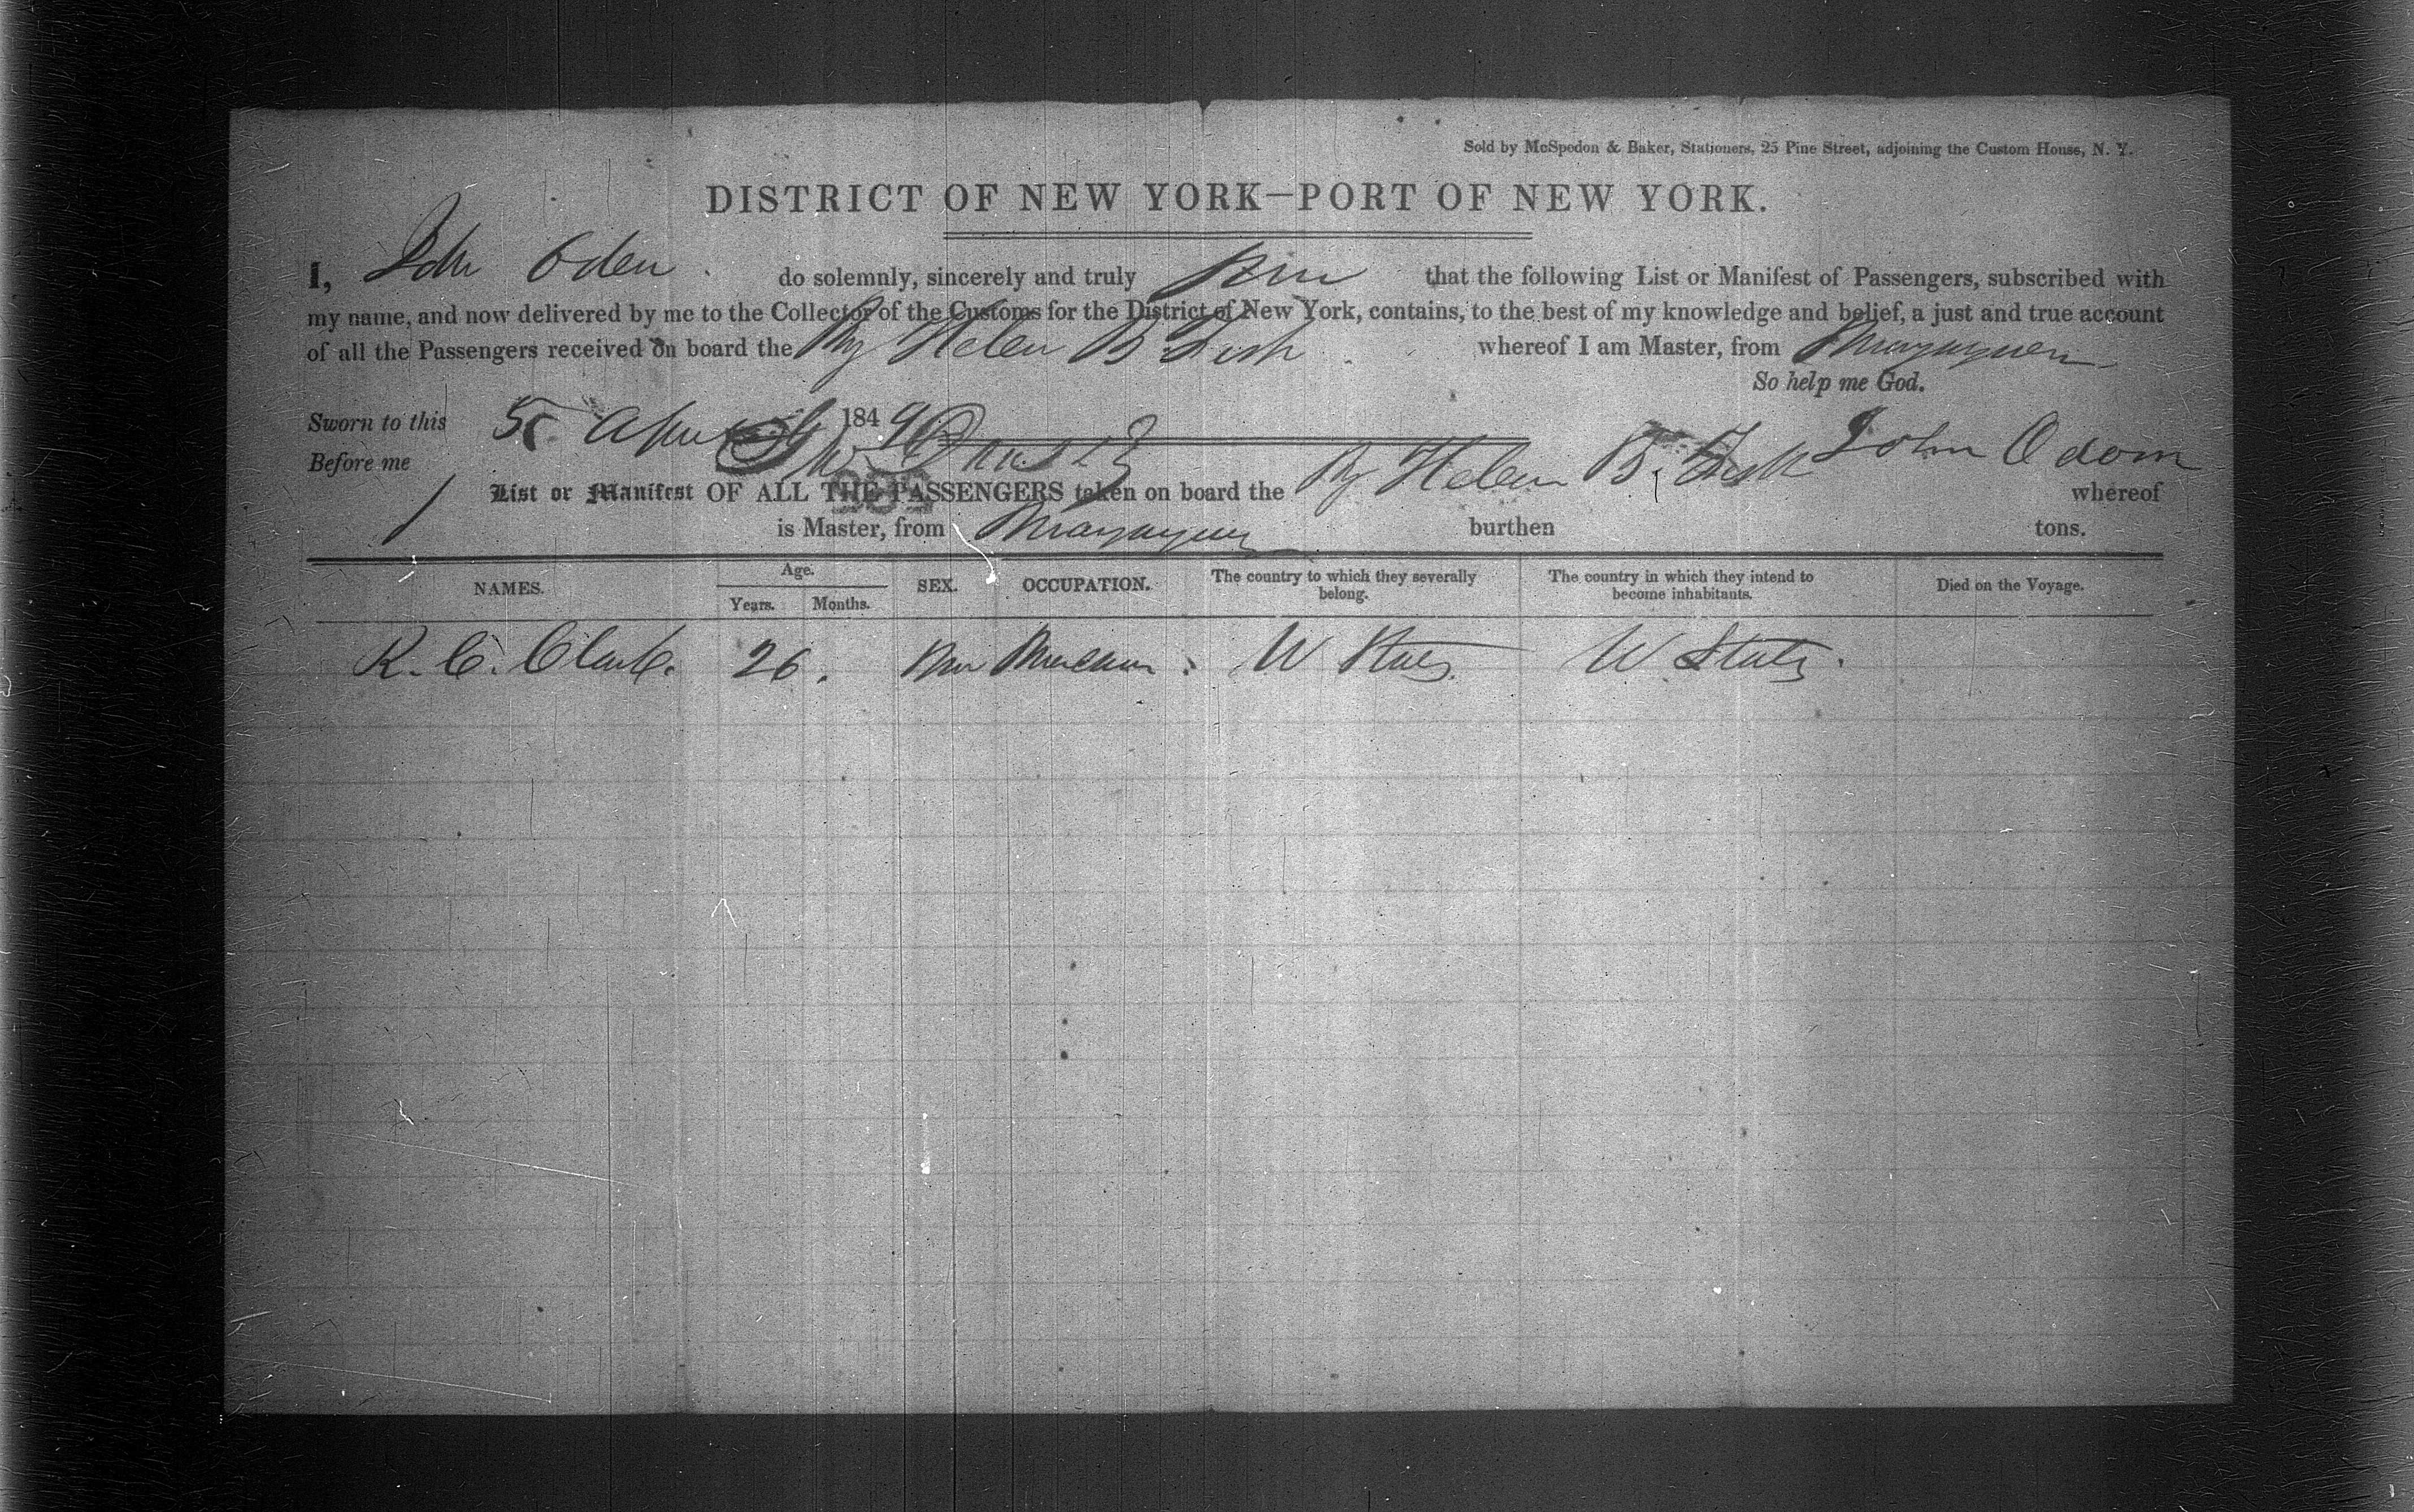 Sold by McSpedon & Baker, Stationers, 25 Pine Street, adjoining the Custom House, N. Y.
DISTRICT OF NEW YORK—PORT OF NEW YORK.
I, John Oden do solemnly, sincerely and truly that the following List or Manifest of Passengers, subscribed with
my name, and now delivered by me to the Collector of the Customs for the District of New York, contains, to the best of my knowledge and belief, a just and true account
of all the Passengers received on board the Helen B whereof I am Master, from Mayaguez
So help me God.
Sworn to this 5 April 1849 John Odom
Before me
1 List or Manifest OF ALL THE PASSENGERS taken on board the Helen B. whereof
is Master, from Mayaguez burthen tons.
NAMES. Age. Years. Months. SEX. OCCUPATION. The country to which they severally belong. The country in which they intend to become inhabitants. Died on the Voyage.
R. C. Clark. 26. U States. U States.